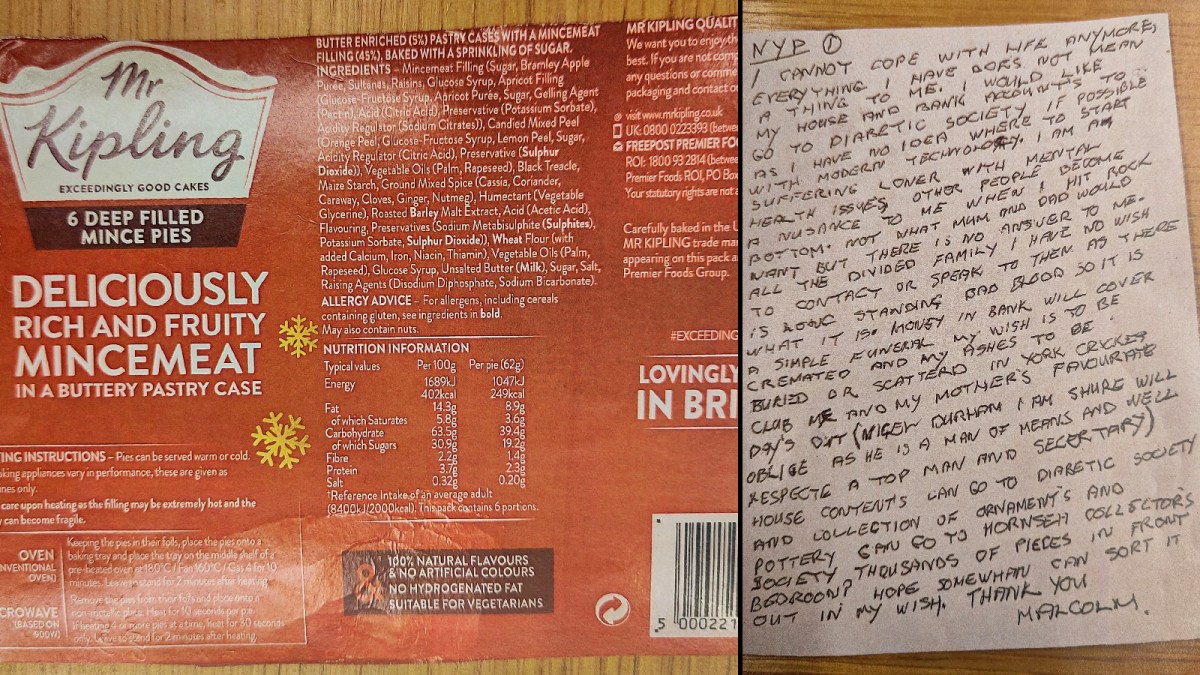 Mr
Kipling
EXCEEDINGLY GOOD CAKES
6 DEEP FILLED
MINCE PIES
DELICIOUSLY
RICH AND FRUITY
MINCEMEAT
IN A BUTTERY PASTRY CASE
ING INSTRUCTIONS – Pies can be served warm or cold.
king appliances vary in performance, these are given as
nes only.
care upon heating as the filling may be extremely hot and the
y can become fragile.
OVEN
NVENTIONAL
OVEN)
Keeping the pies in their foils, place the pies onto a
baking tray and place the tray on the middle shelf of a
pre-heated oven at 180°C / Fan 160°C / Gas 4 for 10
minutes. Leave to stand for 2 minutes after heating.
CROWAVE
(BASED ON
900W)
Remove the pies from their foils and place onto a
non-metallic plate. Heat for 10 seconds per pie.
If heating 4 or more pies at a time, heat for 30 seconds
only. Leave to stand for 2 minutes after heating.
BUTTER ENRICHED (5%) PASTRY CASES WITH A MINCEMEAT
FILLING (45%), BAKED WITH A SPRINKLING OF SUGAR.
INGREDIENTS – Mincemeat Filling (Sugar, Bramley Apple
Purée, Sultanas, Raisins, Glucose Syrup, Apricot Filling
(Glucose-Fructose Syrup, Apricot Purée, Sugar, Gelling Agent
(Pectin), Acid (Citric Acid), Preservative (Potassium Sorbate),
Acidity Regulator (Sodium Citrates)), Candied Mixed Peel
(Orange Peel, Glucose-Fructose Syrup, Lemon Peel, Sugar,
Acidity Regulator (Citric Acid), Preservative (Sulphur
Dioxide)), Vegetable Oils (Palm, Rapeseed), Black Treacle,
Maize Starch, Ground Mixed Spice (Cassia, Coriander,
Caraway, Cloves, Ginger, Nutmeg), Humectant (Vegetable
Glycerine), Roasted Barley Malt Extract, Acid (Acetic Acid),
Flavouring, Preservatives (Sodium Metabisulphite (Sulphites),
Potassium Sorbate, Sulphur Dioxide)), Wheat Flour (with
added Calcium, Iron, Niacin, Thiamin), Vegetable Oils (Palm,
Rapeseed), Glucose Syrup, Unsalted Butter (Milk), Sugar, Salt,
Raising Agents (Disodium Diphosphate, Sodium Bicarbonate).
ALLERGY ADVICE – For allergens, including cereals
containing gluten, see ingredients in bold.
May also contain nuts.
NUTRITION INFORMATION
Typical values Per 100g Per pie (62g)
Energy 1689kJ 1047kJ
402kcal 249kcal
Fat 14.3g 8.9g
of which Saturates 5.8g 3.6g
Carbohydrate 63.5g 39.4g
of which Sugars 30.9g 19.2g
Fibre 2.2g 1.4g
Protein 3.7g 2.3g
Salt 0.32g 0.20g
†Reference Intake of an average adult
(8400kJ/2000kcal). This pack contains 6 portions.
100% NATURAL FLAVOURS
& NO ARTIFICIAL COLOURS
NO HYDROGENATED FAT
SUITABLE FOR VEGETARIANS
MR KIPLING QUALIT
We want you to enjoy th
best. If you are not comp
any questions or comme
packaging and contact o
visit www.mrkipling.co.uk
UK: 0800 0223393 (betwe
FREEPOST PREMIER FO
ROI: 1800 93 2814 (betwee
Premier Foods ROI, PO Box
Your statutory rights are not a
Carefully baked in the U
MR KIPLING trade mar
appearing on this pack a
Premier Foods Group.
#EXCEEDING
LOVINGLY
IN BRI
5 000221
NYP ①
I CANNOT COPE WITH LIFE ANYMORE,
EVERYTHING I HAVE DOES NOT MEAN
A THING TO ME. I WOULD LIKE
MY HOUSE AND BANK ACCOUNT'S TO
GO TO DIABETIC SOCIETY IF POSSIBLE
AS I HAVE NO IDEA WHERE TO START
WITH MODERN TECHNOLOGY. I AM A
SUFFERING LONER WITH MENTAL
HEALTH ISSUES, OTHER PEOPLE BECOME
A NUSANCE TO ME WHEN I HIT ROCK
BOTTOM. NOT WHAT MUM AND DAD WOULD
WANT BUT THERE IS NO ANSWER TO ME.
ALL THE DIVIDED FAMILY I HAVE NO WISH
TO CONTACT OR SPEAK TO THEM AS THERE
IS LONG STANDING BAD BLOOD SO IT IS
WHAT IT IS. MONEY IN BANK WILL COVER
A SIMPLE FUNERAL MY WISH IS TO BE
CREMATED AND MY ASHES TO BE
BURIED OR SCATTERD IN YORK CRICKET
CLUB ME AND MY MOTHER'S FAVOURATE
DAY'S OUT (NIGEL DURHAM I AM SHURE WILL
OBLIGE AS HE IS A MAN OF MEANS AND WELL
RESPECTE A TOP MAN AND SECERTARY)
HOUSE CONTENT'S CAN GO TO DIABETIC SOCIETY
AND COLLECTION OF ORNAMENT'S AND
POTTERY CAN GO TO HORNSEH COLLECTOR'S
SOCIETY THOUSANDS OF PIECES IN FRONT
BEDROOM? HOPE SOMEWHAN CAN SORT IT
OUT IN MY WISH. THANK YOU
MALCOLM.